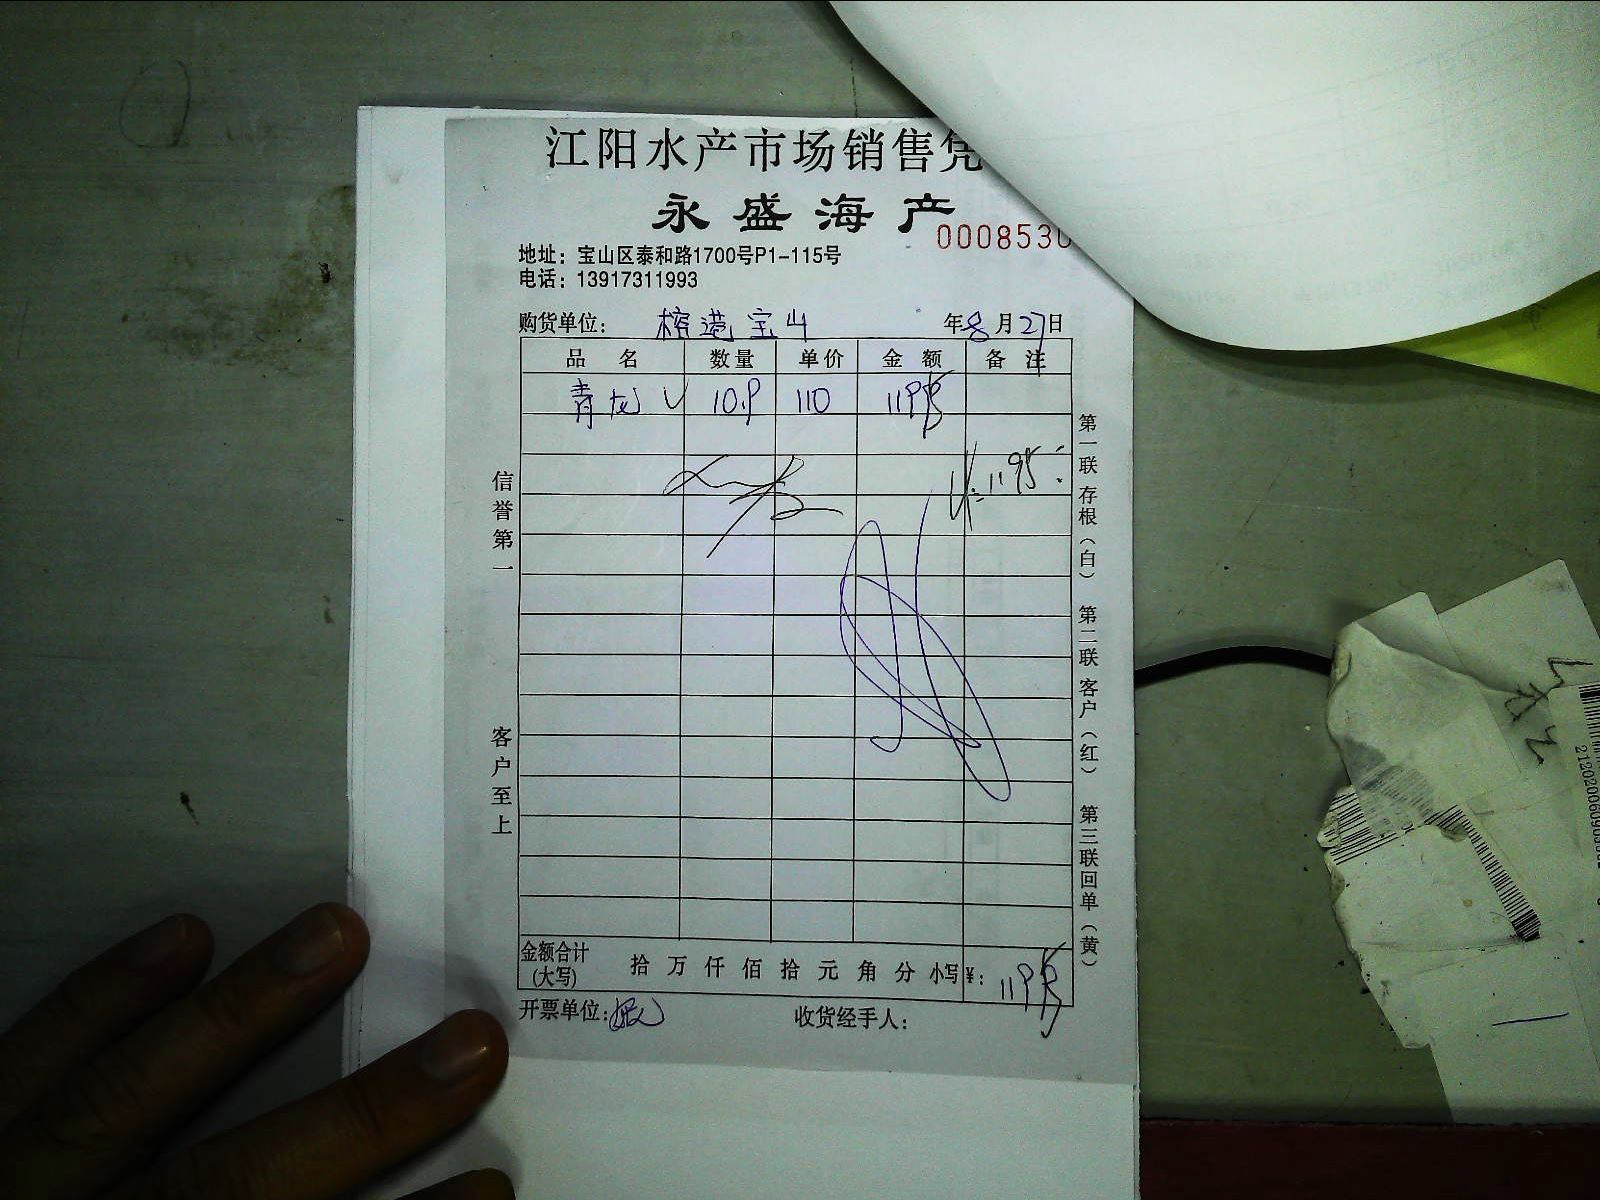 江阳水产市场销售凭
永盛海产
000853
地址：宝山区泰和路1700号P1-115号
电话：13917311993
购货单位：榕港宝山 年8月27日
品名 数量 单价 金额 备注
青龙 √ 10.9 110 1195
¥:1195
信誉第一
客户至上
第一联存根（白） 第二联客户（红） 第三联回单（黄）
金额合计(大写) 拾万仟佰拾元角分 小写¥：1195
开票单位：
收货经手人：